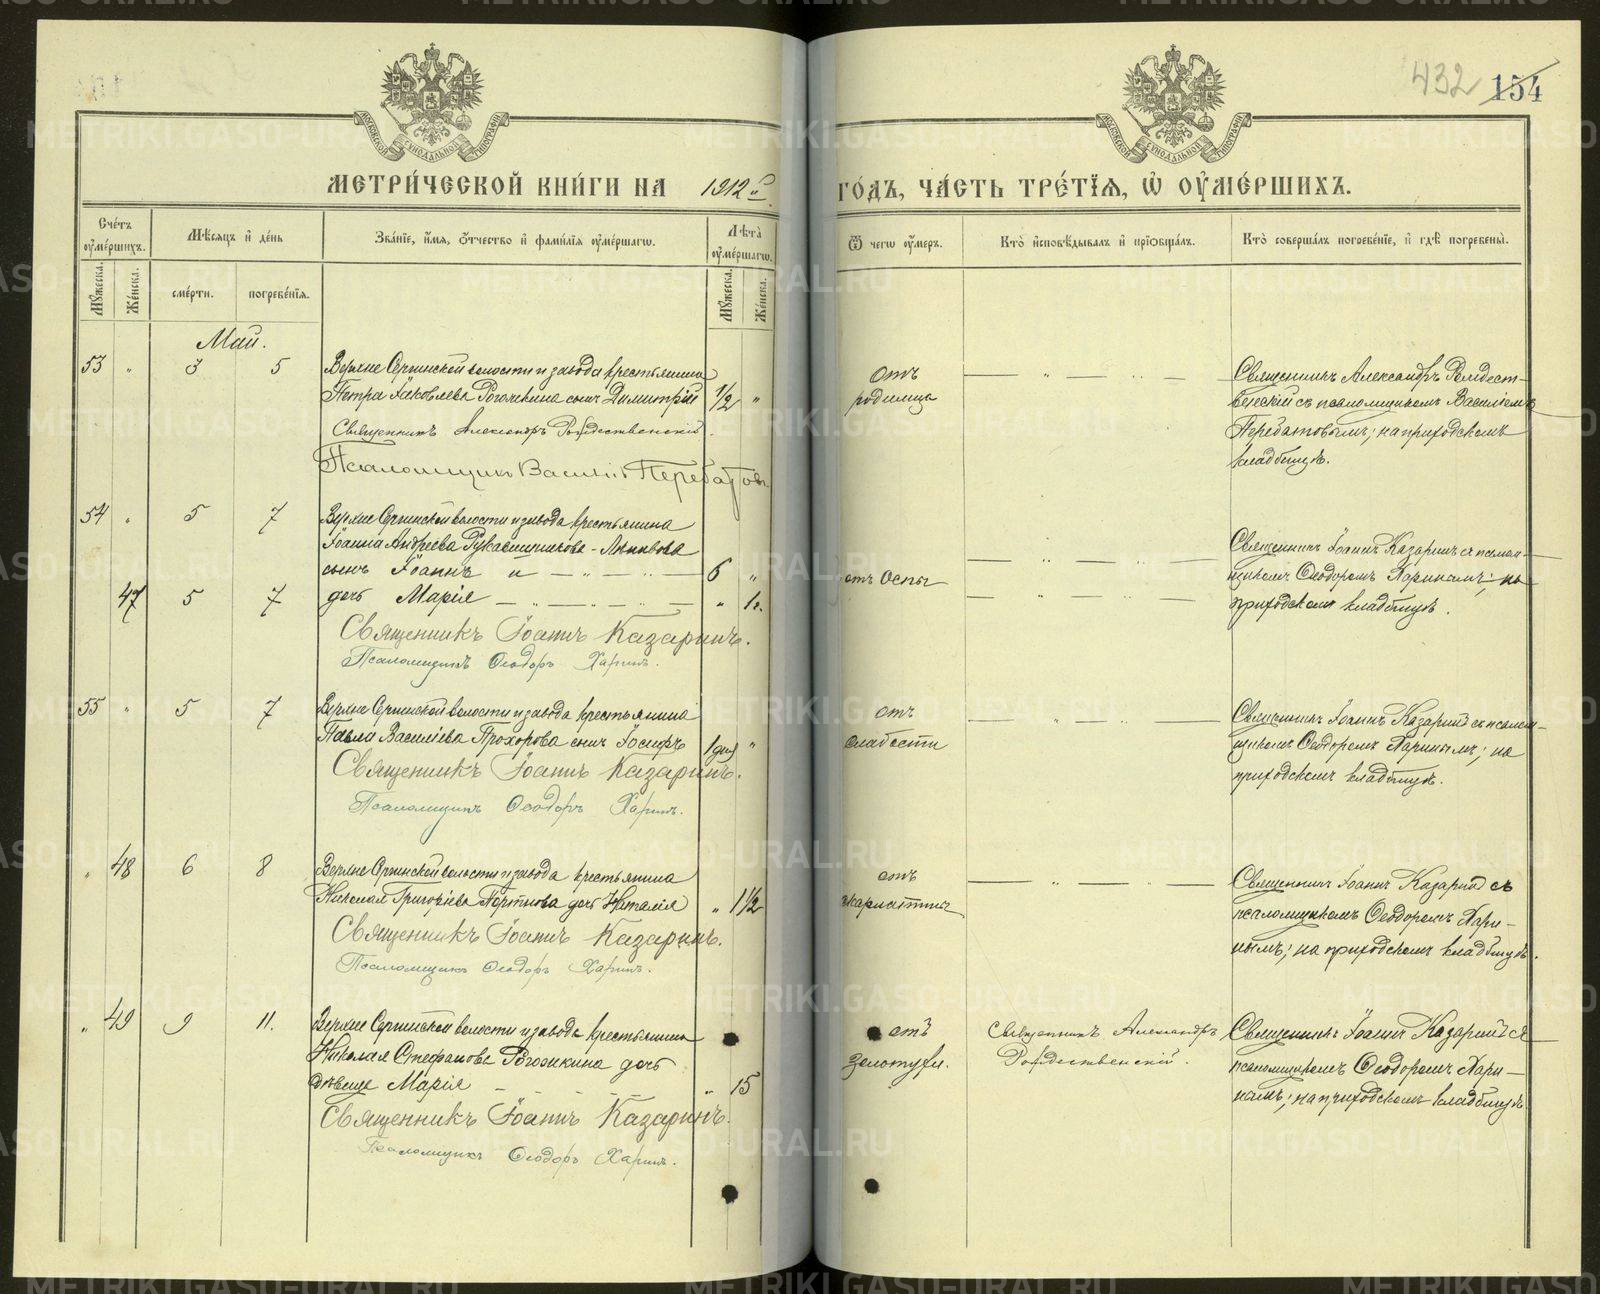 432 154
МЕТРИ́ЧЕСКОЙ КНИ́ГИ НА 1912й ГО́ДЪ, ЧА́СТЬ ТРЕ́ТІѦ, Ѡ҆ ОУ҆МЕ́РШИХЪ.
Сче́тъ оу҆ме́ршихъ.
Мꙋ́жеска.
Же́нска.
Мѣ́сѧцъ и҆ де́нь
сме́рти.
погребе́нїѧ.
Зва́нїе, и҆́мѧ, ѻ҆́тчество и҆ фами́лїѧ оу҆ме́ршагѡ.
Лѣ́та оу҆ме́ршагѡ.
Мꙋ́жеска.
Же́нска.
Ѿ чегѡ̀ оу҆́меръ.
Кто̀ и҆сповѣ́дывалъ и҆ прїѡбща́лъ.
Кто̀ соверша́лъ погребе́нїе, и҆ гдѣ̀ погребены̀.
Май.
53 " 3 5
Верхне Сергинской волости и завода крестьянина
Петра Іаковлева Рогожкина сынъ Димитрій 1/2 "
Священникъ Александръ Рождественскій.
Псаломщикъ Василій Перебатовъ
отъ
родимца
Священникъ Александръ Рождест-
венскій съ псаломщикомъ Василіемъ
Перебатовымъ; на приходскомъ
кладбищѣ.
54 " 5 7
Верхне Сергинской волости и завода крестьянина
Іоанна Андреева Рукавишникова-
сынъ Іоаннъ и — " — " — 6 "
47 5 7 дочь Марія — " — " — " 1г.
Священникъ Іоаннъ Казаринъ.
Псаломщикъ Ѳеодоръ Харинъ.
отъ Оспы
Священникъ Іоаннъ Казаринъ съ псалом-
щикомъ Ѳеодоромъ Харинымъ; на
приходскомъ кладбищѣ.
55 " 5 7
Верхне Сергинской волости и завода крестьянина
Павла Василіева Прохорова сынъ Іосифъ 1 дня "
Священникъ Іоаннъ Казаринъ.
Псаломщикъ Ѳеодоръ Харинъ.
отъ
слабости
Священникъ Іоаннъ Казаринъ съ псалом-
щикомъ Ѳеодоромъ Харинымъ; на
приходскомъ кладбищѣ.
" 48 6 8
Верхне Сергинской волости и завода крестьянина
Николая Григоріева Портнова дочь Наталія " 1 1/2
Священникъ Іоаннъ Казаринъ.
Псаломщикъ Ѳеодоръ Харинъ.
отъ
скарлатины
Священникъ Іоаннъ Казаринъ съ
псаломщикомъ Ѳеодоромъ Хари-
нымъ; на приходскомъ кладбищѣ.
" 49 9 11.
Верхне Сергинской волости и завода крестьянина
Николая Стефанова Рогожкина дочь
дѣвица Марія — " 15
Священникъ Іоаннъ Казаринъ.
Псаломщикъ Ѳеодоръ Харинъ.
отъ
золотухи.
Священникъ Александръ
Рождественскій.
Священникъ Іоаннъ Казаринъ съ
псаломщикомъ Ѳеодоромъ Хари-
нымъ; на приходскомъ кладбищѣ.
METRIKI.GASO-URAL.RU